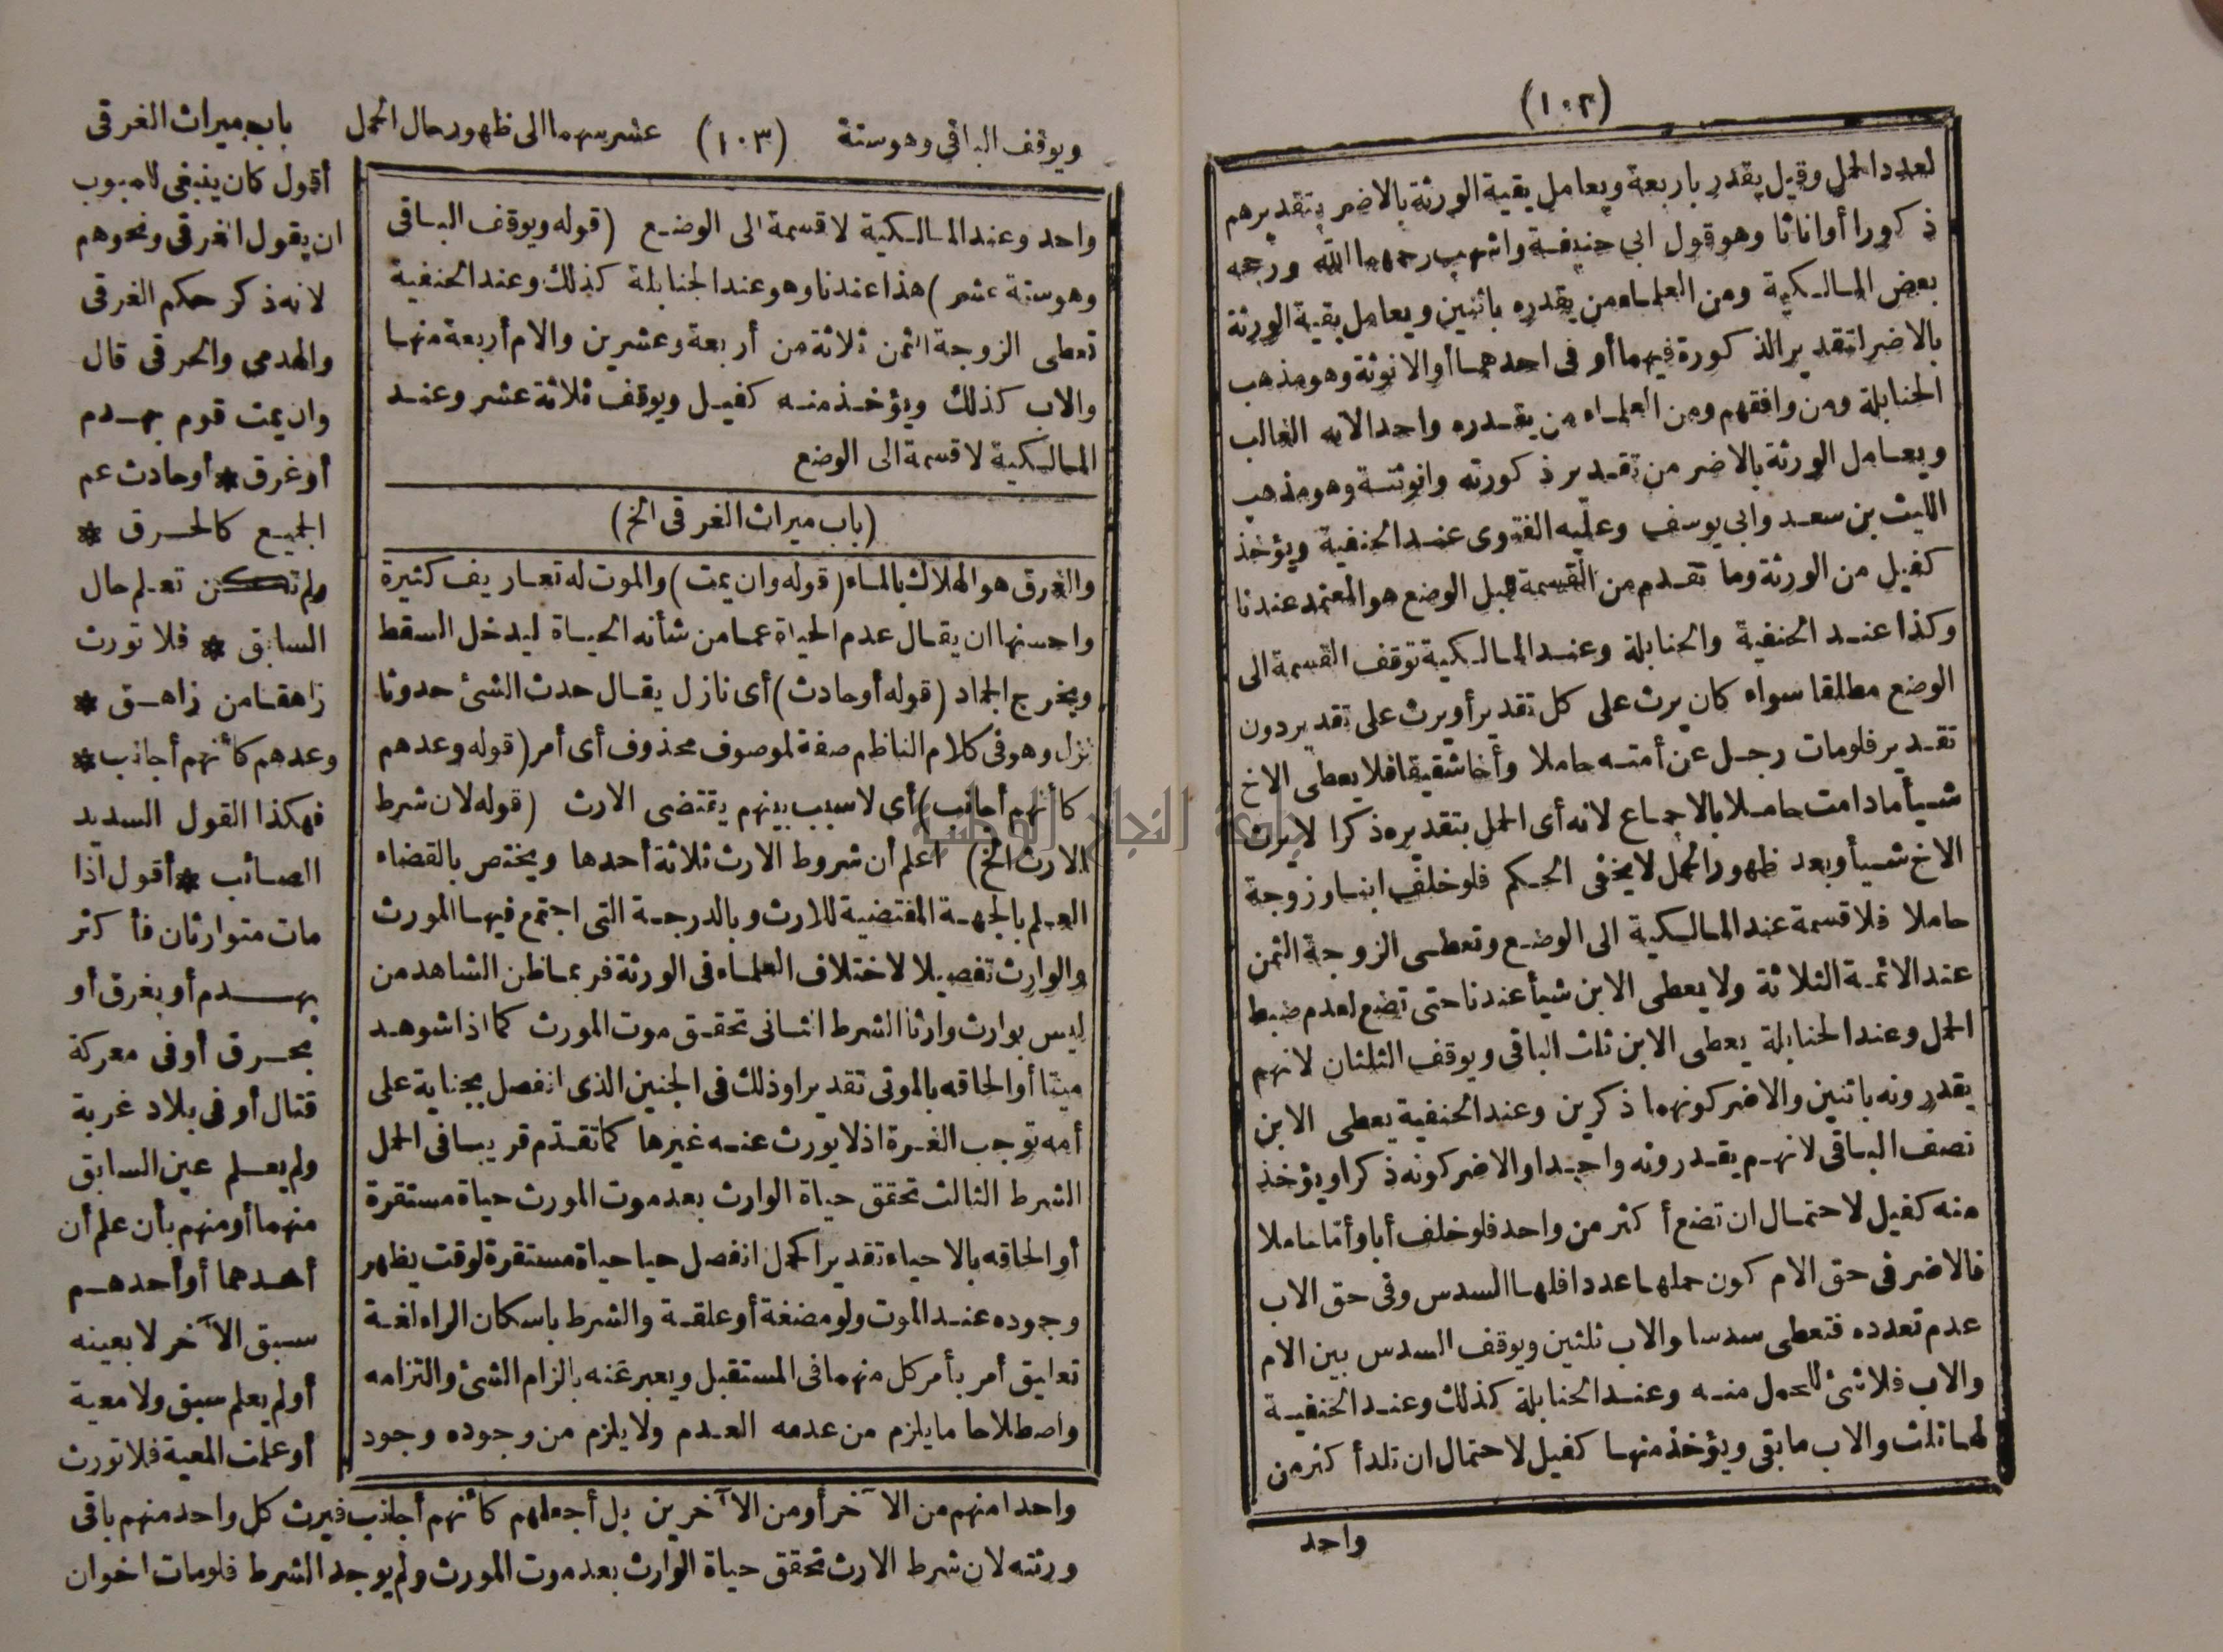 (١٠٢)
لعدد الحمل وقيل يقدر باربعة ويعامل بقية الورثة بالاضر بتقديرهم
ذكورا أو اناثا وهو قول ابي حنيفة واشهب رحمهما الله ورجحه
بعض المالكية ومن العلماء من يقدره باثنين ويعامل بقية الورثة
بالاضر بتقدير الذكورة فيهما أو فى احدهما أو الانوثة وهو مذهب
الحنابلة ومن وافقهم ومن العلماء من يقدره واحدا لانه الغالب
ويعامل الورثة بالاضر من تقدير ذكورته وانوثته وهو مذهب
الليث بن سعد وابى يوسف وعليه الفتوى عند الحنفية ويؤخذ
كفيل من الورثة وما تقدم من القسمة قبل الوضع هو المعتمد عندنا
وكذا عند الحنفية والحنابلة وعند المالكية توقف القسمة الى
الوضع مطلقا سواء كان يرث على كل تقدير أو يرث على تقدير دون
تقدير فلو مات رجل عن أمته حاملا وأخا شقيقا فلا يعطى الاخ
شيأ ما دامت حاملا بالاجماع لانه أى الحمل بتقديره ذكرا لا يرث
الاخ شيأ وبعد ظهور الحمل لا يخفى الحكم فلو خلف ابنا وزوجة
حاملا فلا قسمة عند المالكية الى الوضع وتعطى الزوجة الثمن
عند الائمة الثلاثة ولا يعطى الابن شيأ عندنا حتى تضع لعدم ضبط
الحمل وعند الحنابلة يعطى الابن ثلث الباقى ويوقف الثلثان لانهم
يقدرونه باثنين والاضر كونهما ذكرين وعند الحنفية يعطى الابن
نصف الباقى لانهم يقدرونه واحدا والاضر كونه ذكرا ويؤخذ
منه كفيل لاحتمال ان تضع أكثر من واحد فلو خلف أبا وأما حاملا
فالاضر فى حق الام كون حملها عددا فلها السدس وفى حق الاب
عدم تعدده فتعطى سدسا والاب ثلثين ويوقف السدس بين الام
والاب فلا شئ للحمل منه وعند الحنابلة كذلك وعند الحنفية
لها ثلث والاب ما بقى ويؤخذ منها كفيل لاحتمال ان تلد أكثر من
واحد
ويوقف الباقي وهو ستة (١٠٣) عشر سهما الى ظهور حال الحمل باب ميراث الغرقى
واحد وعند المالكية لا قسمة الى الوضع (قوله ويوقف الباقى
وهو ستة عشر) هذا عندنا وهو عند الحنابلة كذلك وعند الحنفية
تعطى الزوجة الثمن ثلاثة من أربعة وعشرين والام أربعة منها
والاب كذلك ويؤخذ منه كفيل ويوقف ثلاثة عشر وعند
المالكية لا قسمة الى الوضع
(باب ميراث الغرقى الخ)
والغرق هو الهلاك بالماء (قوله وان يمت) والموت له تعاريف كثيرة
واحسنها ان يقال عدم الحياة عما من شأنه الحياة ليدخل السقط
ويخرج الجماد (قوله أو حادث) أى نازل يقال حدث الشئ حدوثا
نزل وهو فى كلام الناظم صفة لموصوف محذوف أى أمر (قوله وعدهم
كأنهم أجانب) أي لا سبب بينهم يقتضى الارث (قوله لان شرط
الارث الخ) اعلم أن شروط الارث ثلاثة أحدها ويختص بالقضاء
العلم بالجهة المقتضية للارث وبالدرجة التى اجتمع فيها المورث
والوارث تفصيلا لاختلاف العلماء فى الورثة فربما ظن الشاهد من
ليس بوارث وارثا الشرط الثانى تحقق موت المورث كما اذا شوهد
ميتا أو الحاقه بالموتى تقديرا وذلك فى الجنين الذى انفصل بجناية على
أمه توجب الغرة اذ لا يورث عنه غيرها كما تقدم قريبا فى الحمل
الشرط الثالث تحقق حياة الوارث بعد موت المورث حياة مستقرة
أو الحاقه بالاحياء تقديرا كحمل انفصل حيا حياة مستقرة لوقت يظهر
وجوده عند الموت ولو مضغة أو علقة والشرط باسكان الراء لغة
تعليق أمر بأمر كل منهما فى المستقبل ويعبر عنه بالزام الشئ والتزامه
واصطلاحا ما يلزم من عدمه العدم ولا يلزم من وجوده وجود
أقول كان ينبغى للمبوب
ان يقول الغرقى ونحوهم
لانه ذكر حكم الغرقى
والهدمى والحرقى قال
وان يمت قوم بهدم
أو غرق * أو حادث عم
الجميع كالحرق *
ولم تكن تعلم حال
السابق * فلا تورث
زاهقا من زاهق *
وعدهم كأنهم أجانب *
فهكذا القول السديد
الصائب * أقول اذا
مات متوارثان فأكثر
بهدم أو بغرق أو
بحرق أو فى معركة
قتال أو فى بلاد غربة
ولم يعلم عين السابق
منهما أو منهم بأن علم أن
أحدهما أو أحدهم
سبق الآخر لا بعينه
أو لم يعلم سبق ولا معية
أو علمت المعية فلا تورث
واحدا منهم من الآخر أو من الآخرين بل أجعلهم كأنهم أجانب فيرث كل واحد منهم باقى
ورثته لان شرط الارث تحقق حياة الوارث بعد موت المورث ولم يوجد الشرط فلو مات اخوان
جامعة النجاح الوطنية